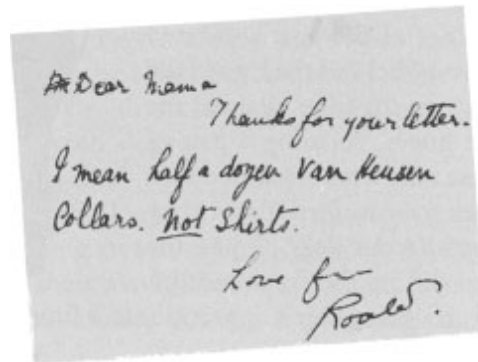 Dear Mama
Thanks for your letter.
I mean half a dozen Van Heusen
Collars. Not Shirts.
Love fr
Roald.